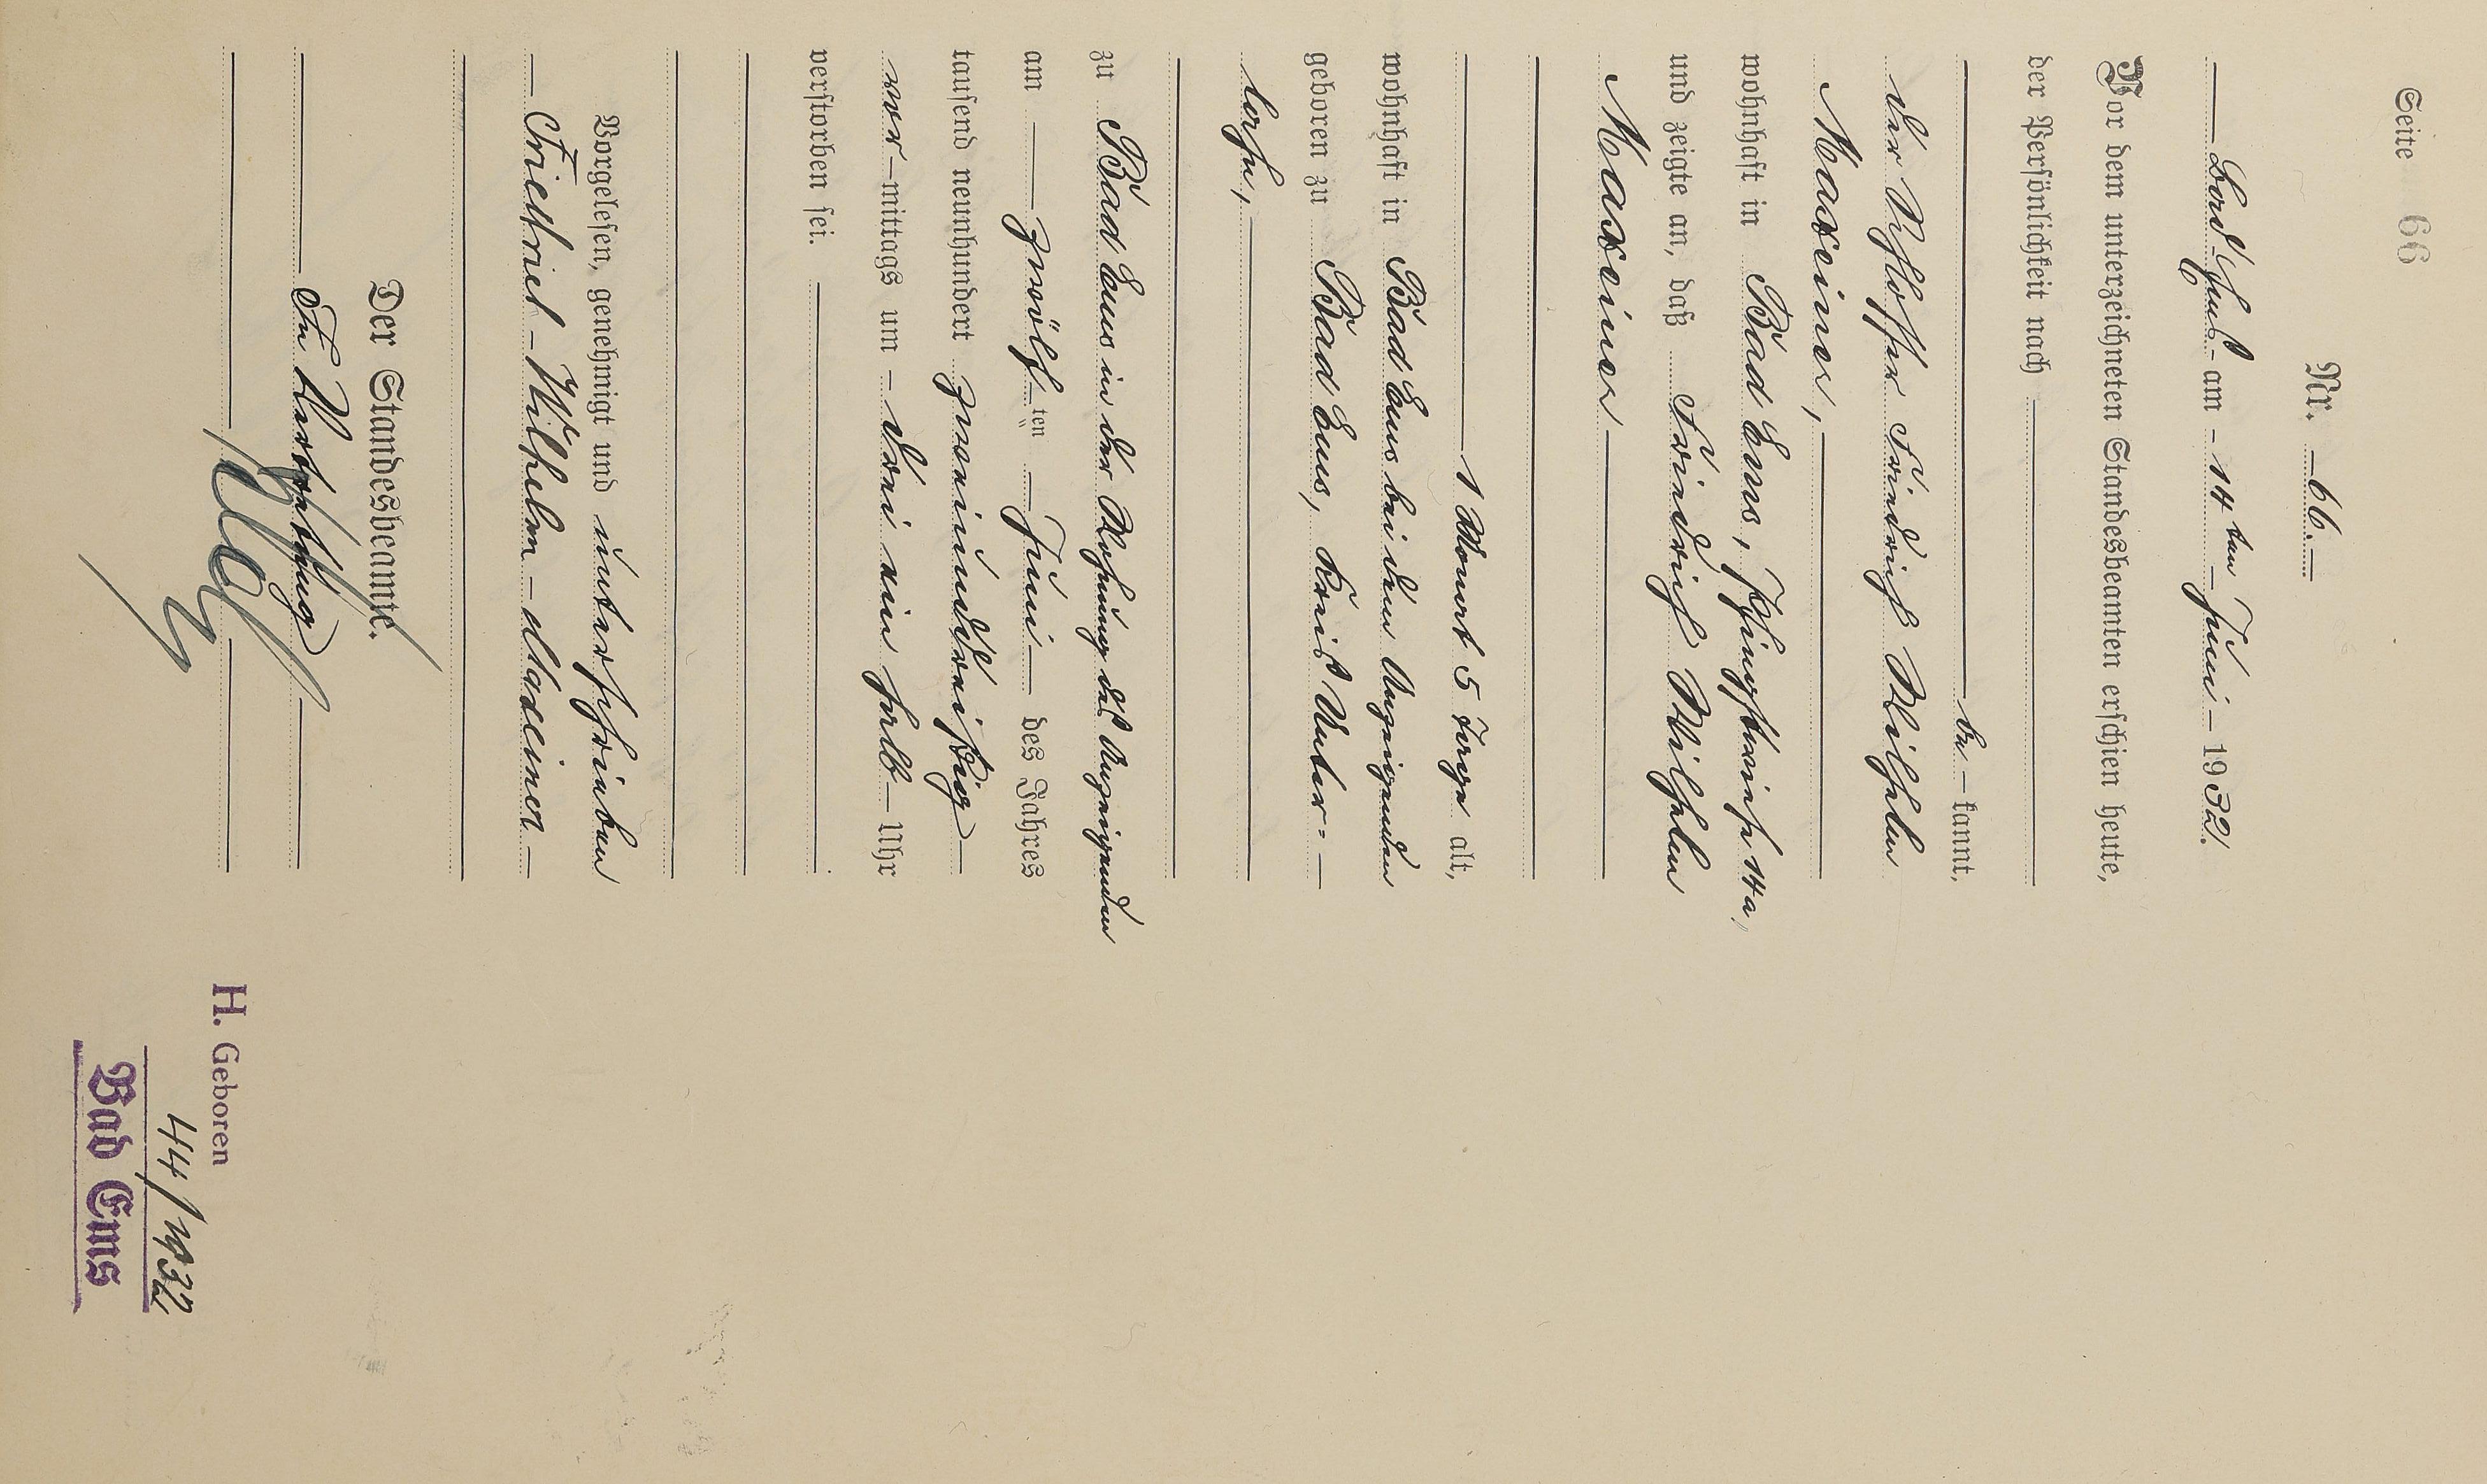 Seite 66
Nr. – 66. –
Bad Ems am – 14ten – Juni – 1932.
Vor dem unterzeichneten Standesbeamten erschien heute,
der Persönlichkeit nach
be – kannt,
der Schlosser Friedrich Wilhelm
Maxeiner,
wohnhaft in Bad Ems, Pfingstwiese 14a,
und zeigte an, daß Friedrich Wilhelm
Maxeiner
1 Monat 5 Tage alt,
wohnhaft in Bad Ems bei dem Anzeigenden
geboren zu Bad Ems, Kreis Unter-
lahn,
zu Bad Ems in der Wohnung des Anzeigenden
am zwölften Juni des Jahres
tausend neunhundert zweiunddreißig
vor – mittags um – drei ein halb – Uhr
verstorben sei.
Vorgelesen, genehmigt und unterschrieben
Friedrich – Wilhelm – Maxeiner –
Der Standesbeamte.
In Vertretung
H. Geboren
44/1932
Bad Ems